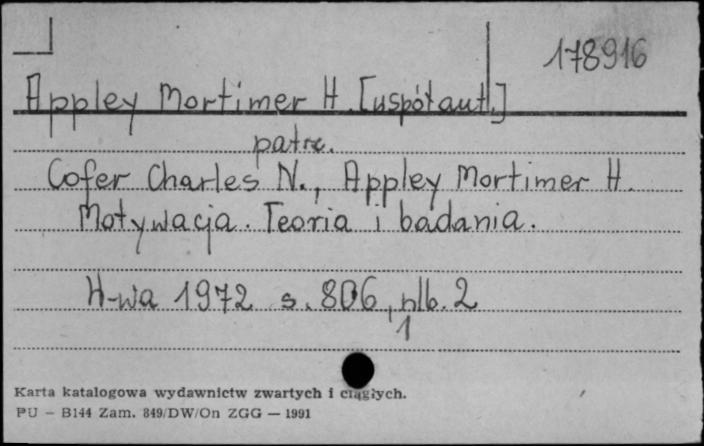 178916
Appley Mortimer H. [współaut.]
patrz.
Cofer Charles N., Appley Mortimer H.
Motywacja. Teoria i badania.
W-wa 1972 s. 806, nlb. 2
1
Karta katalogowa wydawnictw zwartych i ciągłych.
PU – B144 Zam. 849/DW/On ZGG — 1991